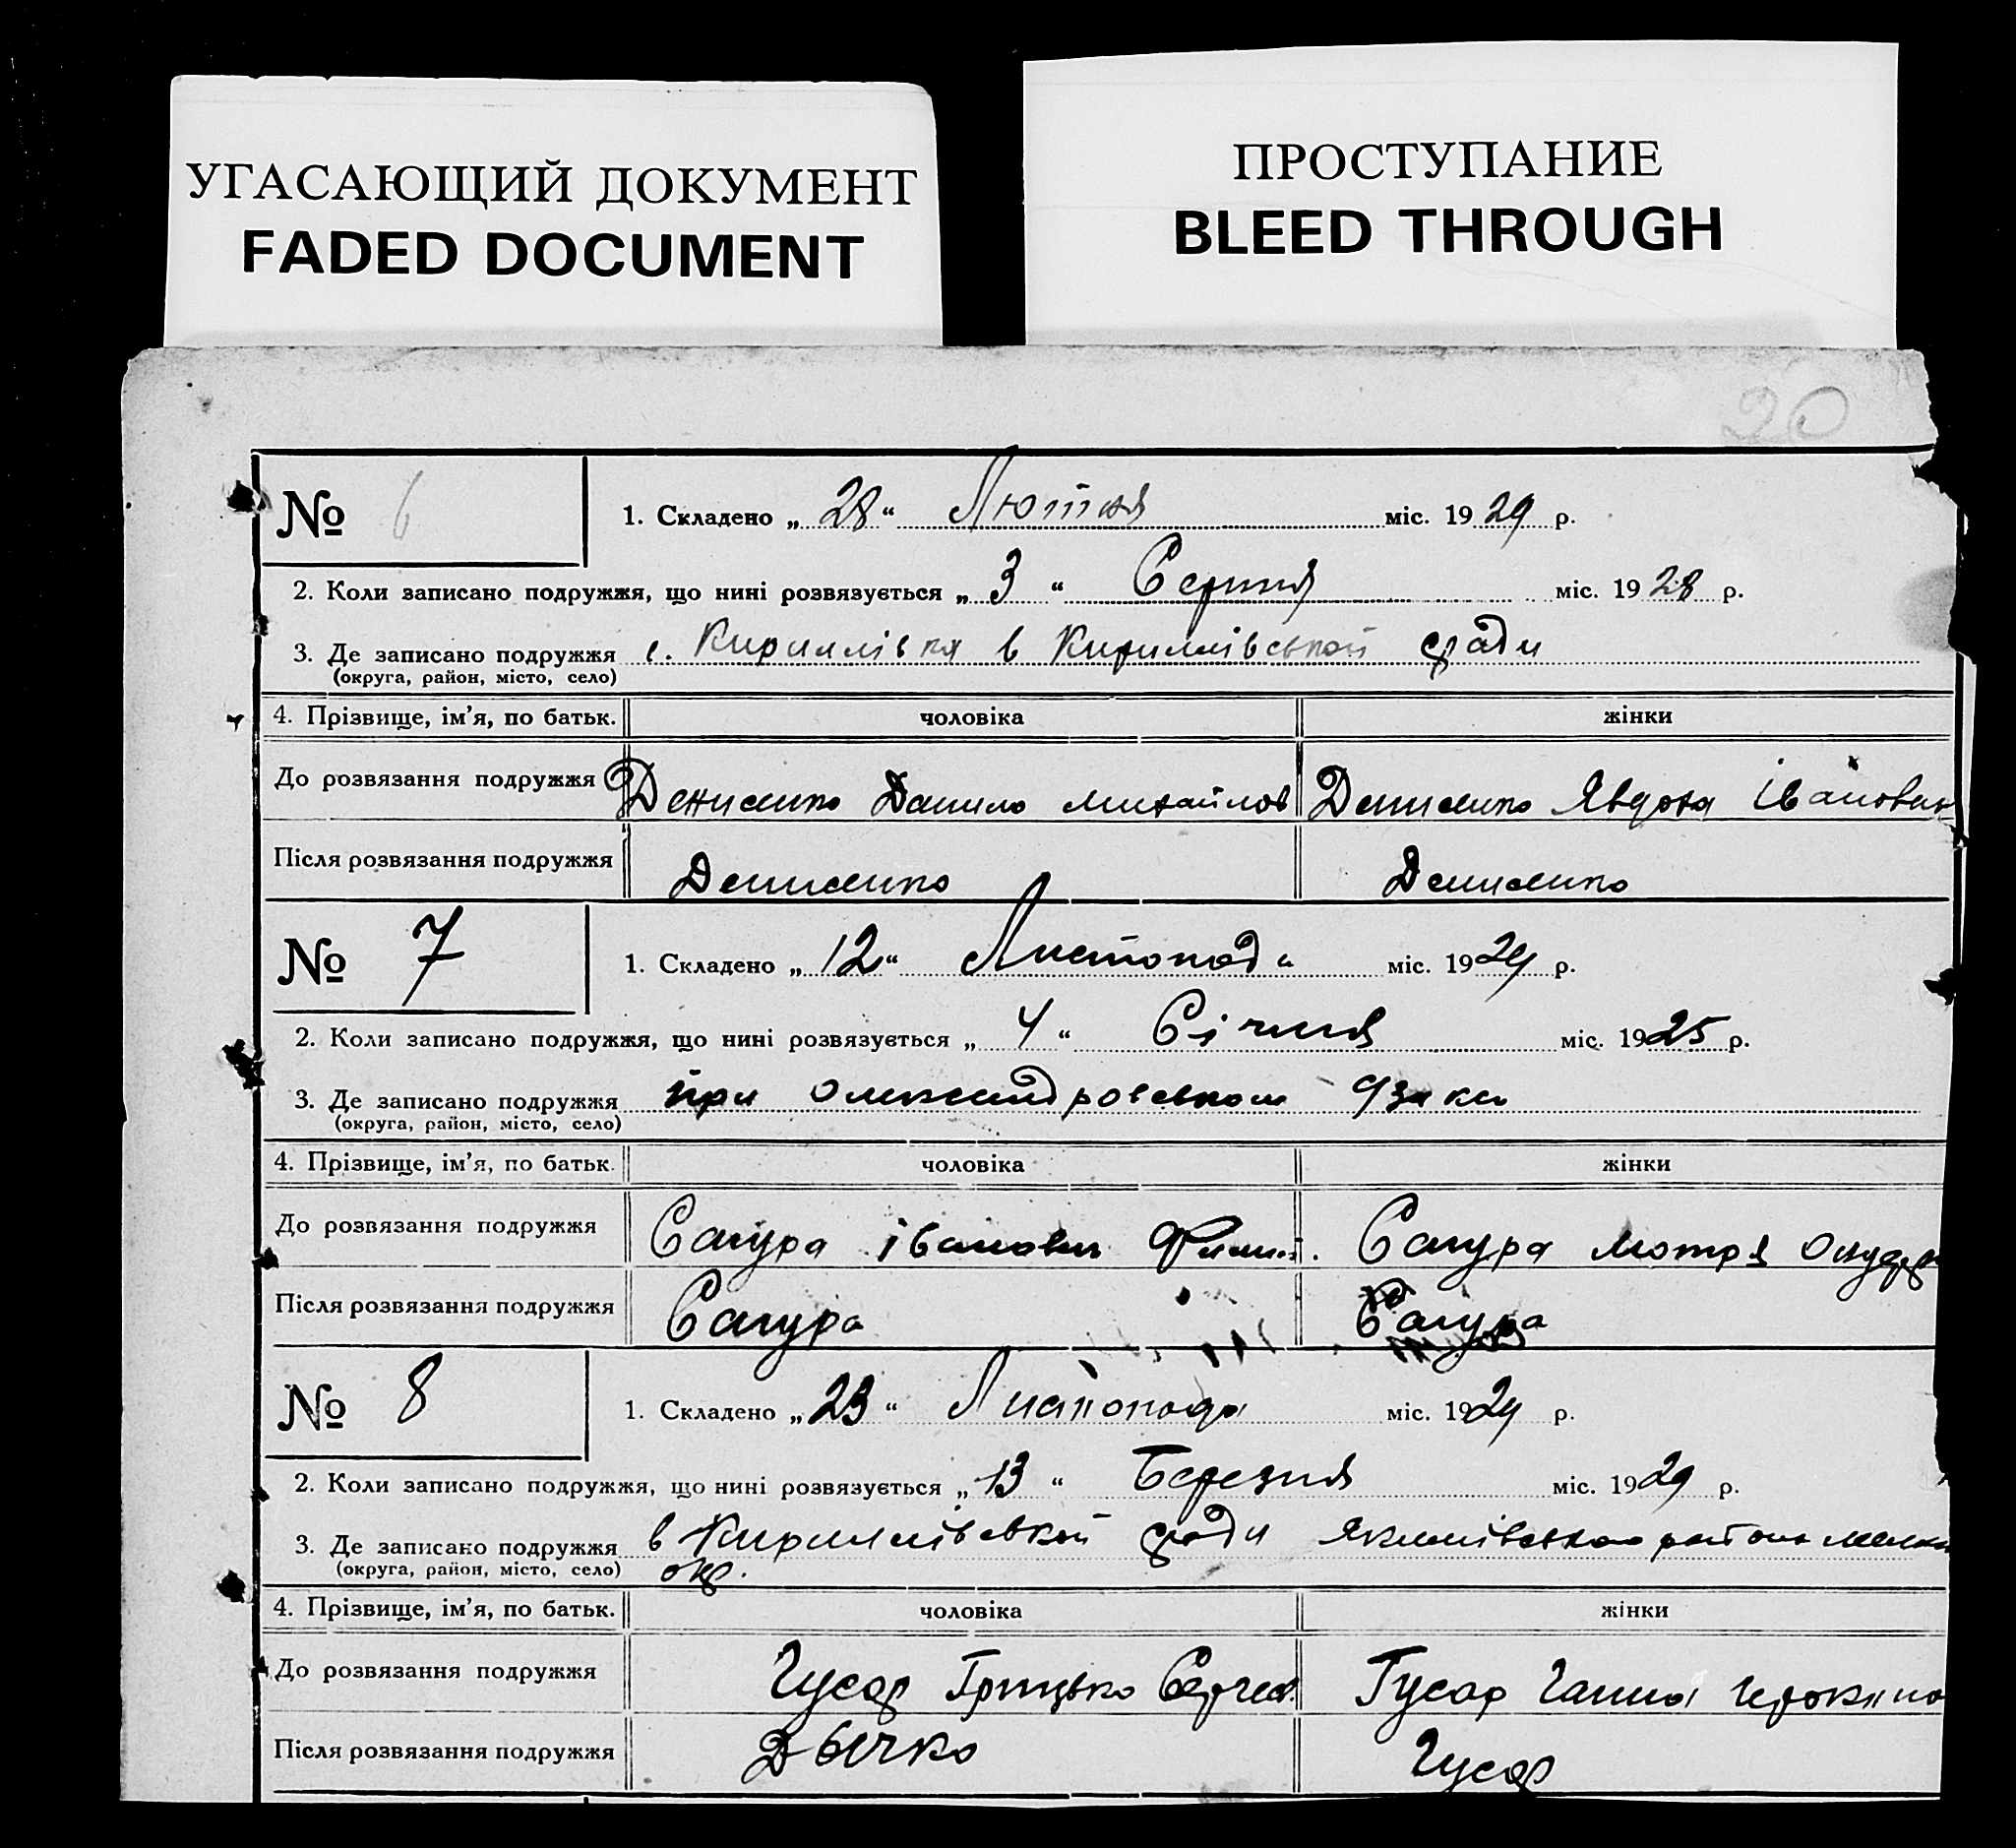 УГАСАЮЩИЙ ДОКУМЕНТ
FADED DOCUMENT
ПРОСТУПАНИЕ
BLEED THROUGH
20
№ 6
1. Складено „ 28 “ Лютня міс. 1929 р.
2. Коли записано подружжя, що нині розвязується „ 3 “ Серпня міс. 1928 р.
3. Де записано подружжя с. Кириллівка в Кириллівської сради
(округа, район, місто, село)
4. Прізвище, ім’я, по батьк. чоловіка жінки
До розвязання подружжя Денисенко Данило Михайлов Денисенко Явдоха Іванов
Після розвязання подружжя Денисенко Денисенко
№ 7
1. Складено „ 12 “ Листопада міс. 1929 р.
2. Коли записано подружжя, що нині розвязується „ 4 “ Січня міс. 1925 р.
3. Де записано подружжя при
(округа, район, місто, село)
4. Прізвище, ім’я, по батьк. чоловіка жінки
До розвязання подружжя Сагура Сагура Мотря
Після розвязання подружжя Сагура Сагура
№ 8
1. Складено „ 23 “ Листопада міс. 1929 р.
2. Коли записано подружжя, що нині розвязується „ 13 “ Березня міс. 1929 р.
3. Де записано подружжя в Кириллівскій сради
(округа, район, місто, село) окр.
4. Прізвище, ім’я, по батьк. чоловіка жінки
До розвязання подружжя Гусар Грицько Гусар Ганна
Після розвязання подружжя Гусар